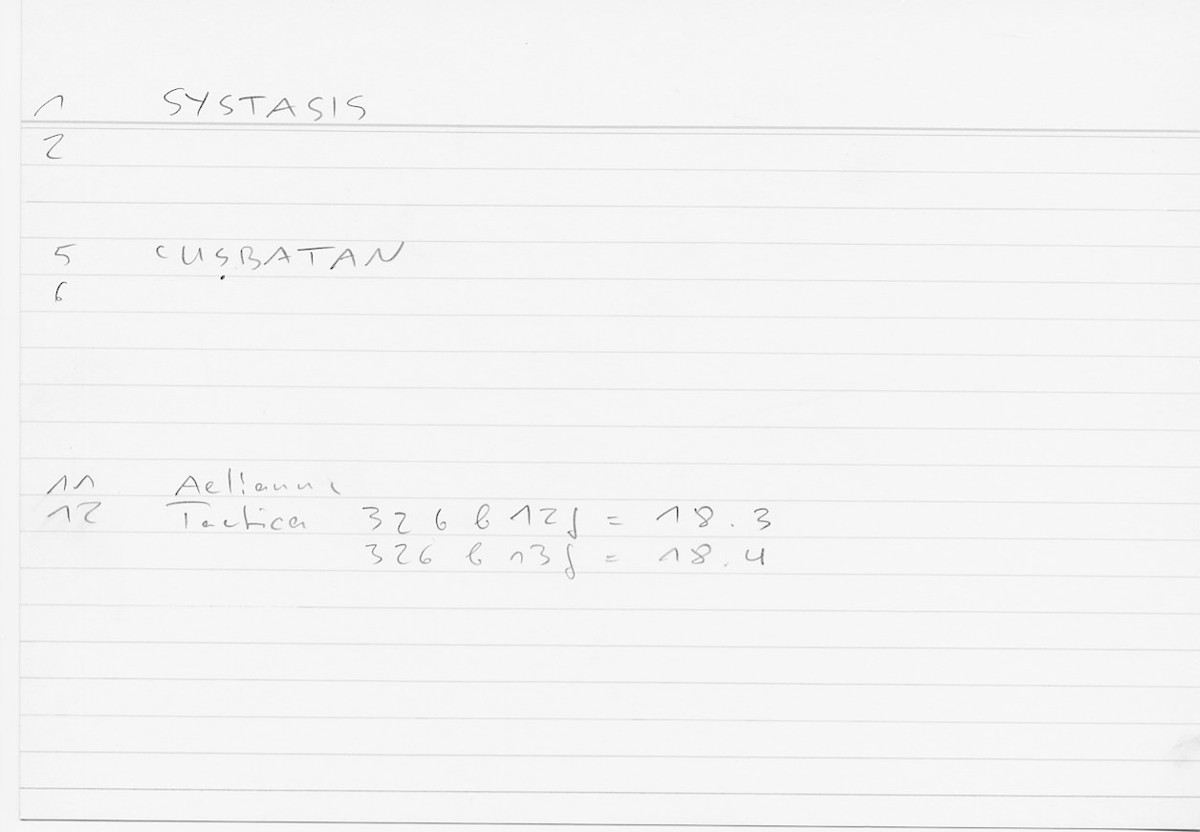 1 SYSTASIS
2
5 ʿUṢBATAN
6
11 Aelianus
12 Tactica 326 b 12f = 18.3
326 b 13f = 18.4